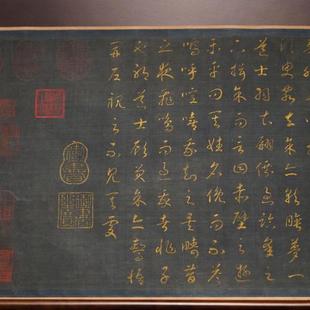 須臾客去余亦就睡夢一
道士羽衣翩僊過臨皋之
下揖余而言曰赤壁之遊
樂乎問其姓名俛而不答
嗚呼噫嘻我知之矣疇昔
之夜飛鳴而過我者非子
也耶道士顧笑余亦驚悟
開戶視之不見其處